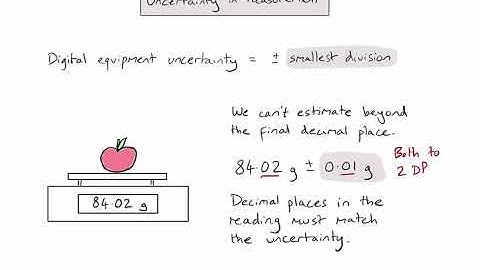 Uncertainty in Measurement
Digital equipment uncertainty = ± smallest division
We can't estimate beyond
the final decimal place.
84.02 g ± 0.01 g
Both to
2 DP
Decimal places in the
reading must match
the uncertainty.
84.02 g